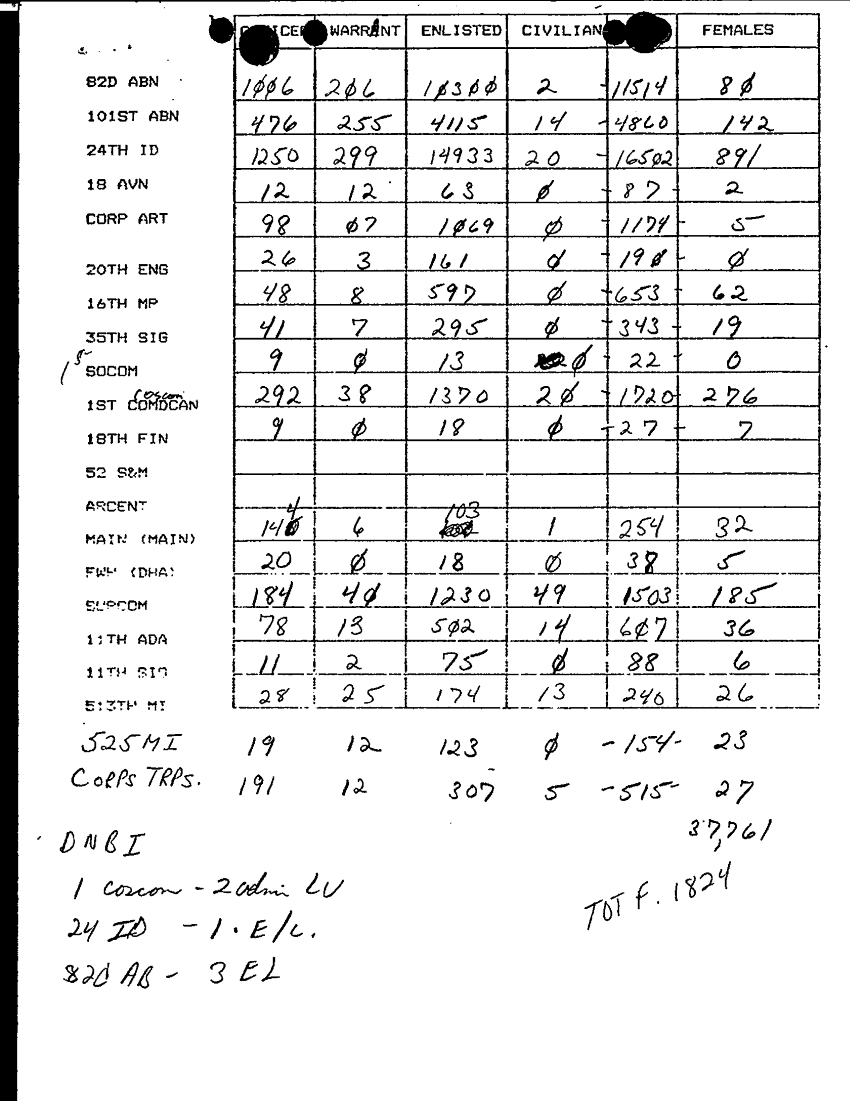 WARRANT ENLISTED CIVILIAN FEMALES
82D ABN 1006 206 10300 2 -11514 80
101ST ABN 476 255 4115 14 -4860 142
24TH ID 1250 299 14933 20 -16502 891
18 AVN 12 12 63 0 -87- 2
CORP ART 98 07 1069 0 -1174- 5
20TH ENG 26 3 161 0 -190- 0
16TH MP 48 8 597 0 -653- 62
35TH SIG 41 7 295 0 -343- 19
SOCOM 9 0 13 0 -22- 0
1ST COMDCAN Coscom 292 38 1370 20 -1720- 276
18TH FIN 9 0 18 0 -27- 7
52 S&M
ARCENT
MAIN (MAIN) 144 6 103 1 254 32
FWH (DHA) 20 0 18 0 38 5
SUPCOM 184 40 1230 49 1503 185
11TH ADA 78 13 502 14 607 36
11TH SIG 11 2 75 0 88 6
513TH MI 28 25 174 13 240 26
525 MI 19 12 123 0 -154- 23
CORPS TRPS. 191 12 307 5 -515- 27
37,761
DNBI
TOT F. 1824
1 coscom - 2 admin LV
24 ID - 1. E/L.
82d AB - 3 EL